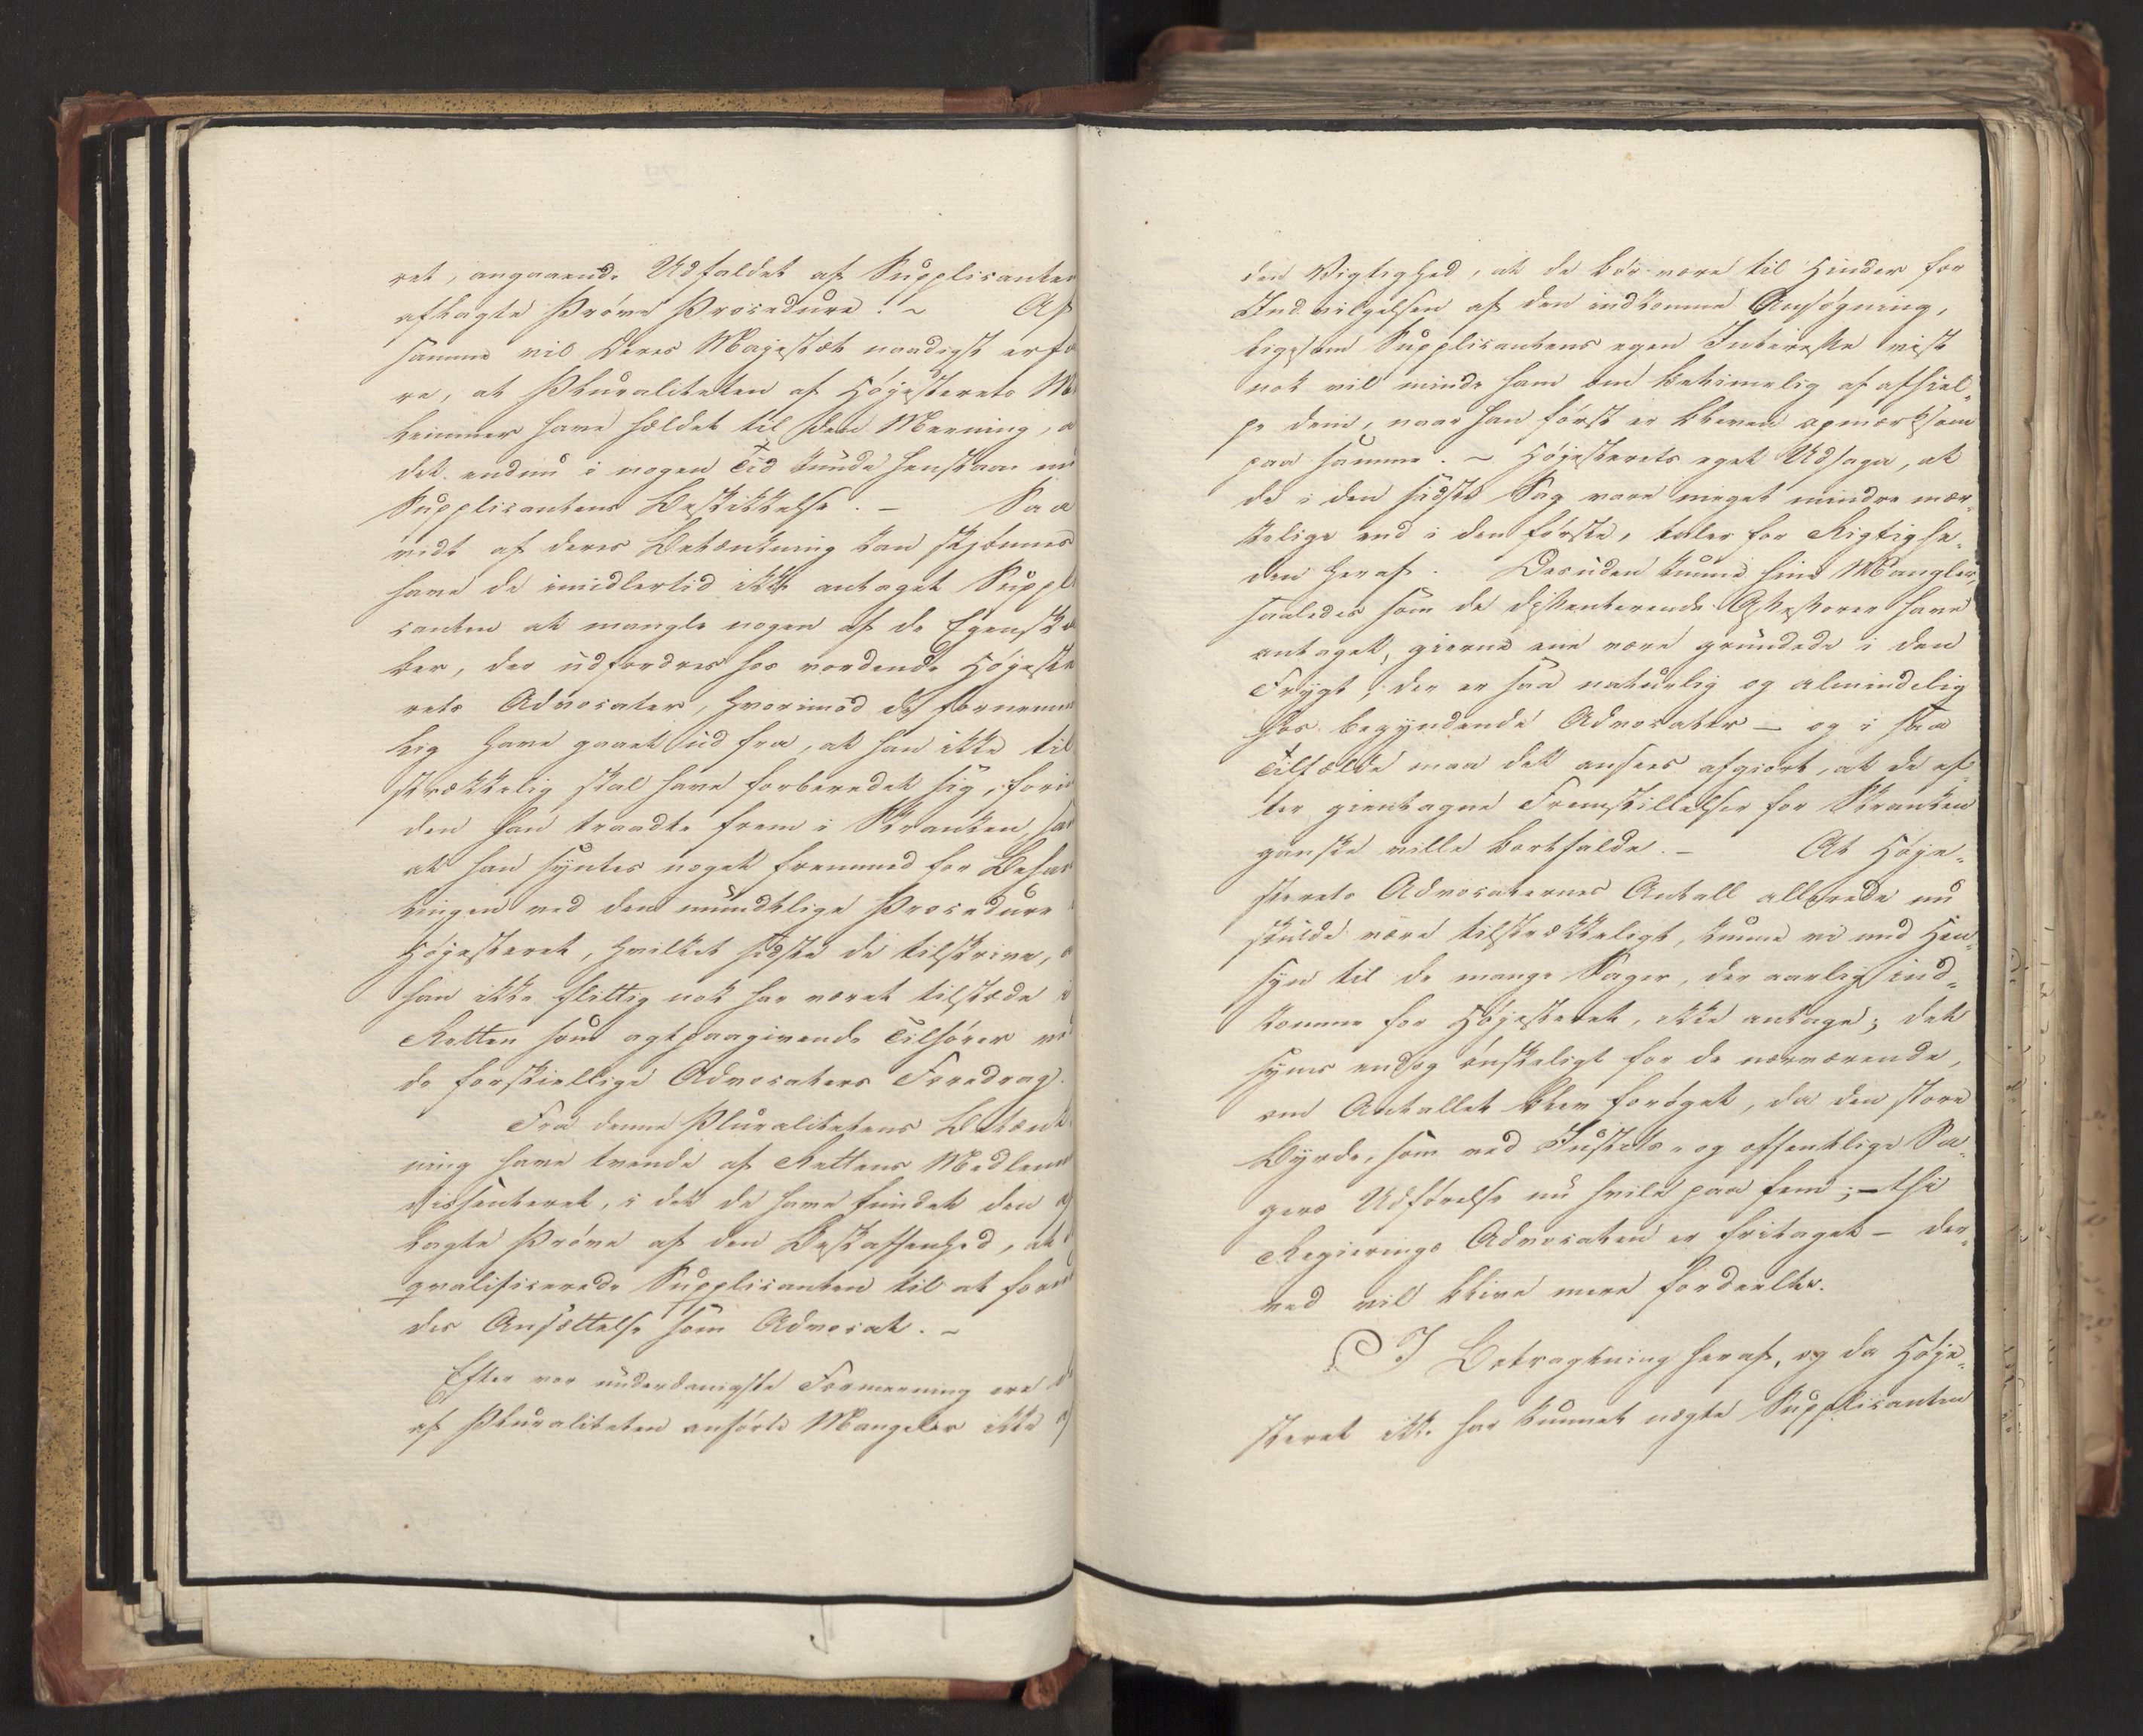 ret, angaaende Udfaldet af Supplicanten
aflagte Prøve Procedure. ~ Af
samme vil Deres Majestæt naadigst erfa
re, at Pluraliteten af Højesterets Me
lemmer have hældet til den Meening, a
det endnu i nogen Tid kunde henstaae me
Supplicantens Beskikkelse. – Saa
vidt af deres Betænkning kan skjønnes
have de imidlertid ikke antaget Suppl
canten at mangle nogen af de Egenska
ber, der udfordres hos vordende Højeste
rets Advocater, hvorimod de fornemme
lig have gaaet ud fra, at han ikke til
strækkelig skal have forberedet sig, forin
den han traadte frem i Skranken, sa
at han syntes noget fremmed for Behan
lingen ved den mundtlige Procedure i
Højesteret, hvilket sidste de tilskrive, a
han ikke flittig nok har været tilstæde i
Retten som agtpaagivende Tilhører ve
de forskiellige Advocaters Foredrag.
Fra denne Pluralitetens Betænk
ning have tvende af Rettens Medlemm
dissenteret, i det de have fundet den af
lagte Prøve af den Beskaffenhed, at d
qvalificerede Supplicanten til at form
des Ansættelse som Advocat. –
Efter vor underdanigste Formeening ere de
af Pluraliteten anførte Mangeler ikke af
den Vigtighed, at de bør være til Hinder for
Indvilgelsen af den indkomne Ansøgning,
ligesom Supplicantens egen Interesse vist
nok vil minde ham om betimelig at afhiel-
pe dem, naar han først er bleven opmærksom
paa samme. ~ Højesterets eget Udsagn, at
de i den sidste Sag vare meget mindre mær-
kelige end i den første, taler for Rigtighe-
den heraf. Desuden kunne hine Mangler,
saaledes som de dissenterende Assessorer have
antaget, gierne ene være grundede i den
Frygt, der er saa naturlig og almindelig
hos begyndende Advocater – og i saa
Tilfælde maa det ansees afgiort, at de ef-
ter gientagne Fremstillelser for Skranken
ganske ville bortfalde. – At Høje-
sterets Advocaternes Antall allerede nu
skulde være tilstrækkeligt, kunne vi med Hen-
syn til de mange Sager, der aarlig ind-
komme for Højesteret, ikke antage; det
synes endog ønskeligt for de nærværende,
om Antallet blev forøget, da den store
Byrde, som ved Justits- og offentlige Sa-
gers Udførelse nu hvile paa fem; – thi
Regierings Advocaten er fritaget – der-
ved vil blive mere fordeelt.
I Betragtning heraf, og da Høje-
steret ikke har kunnet nægte Supplicanten